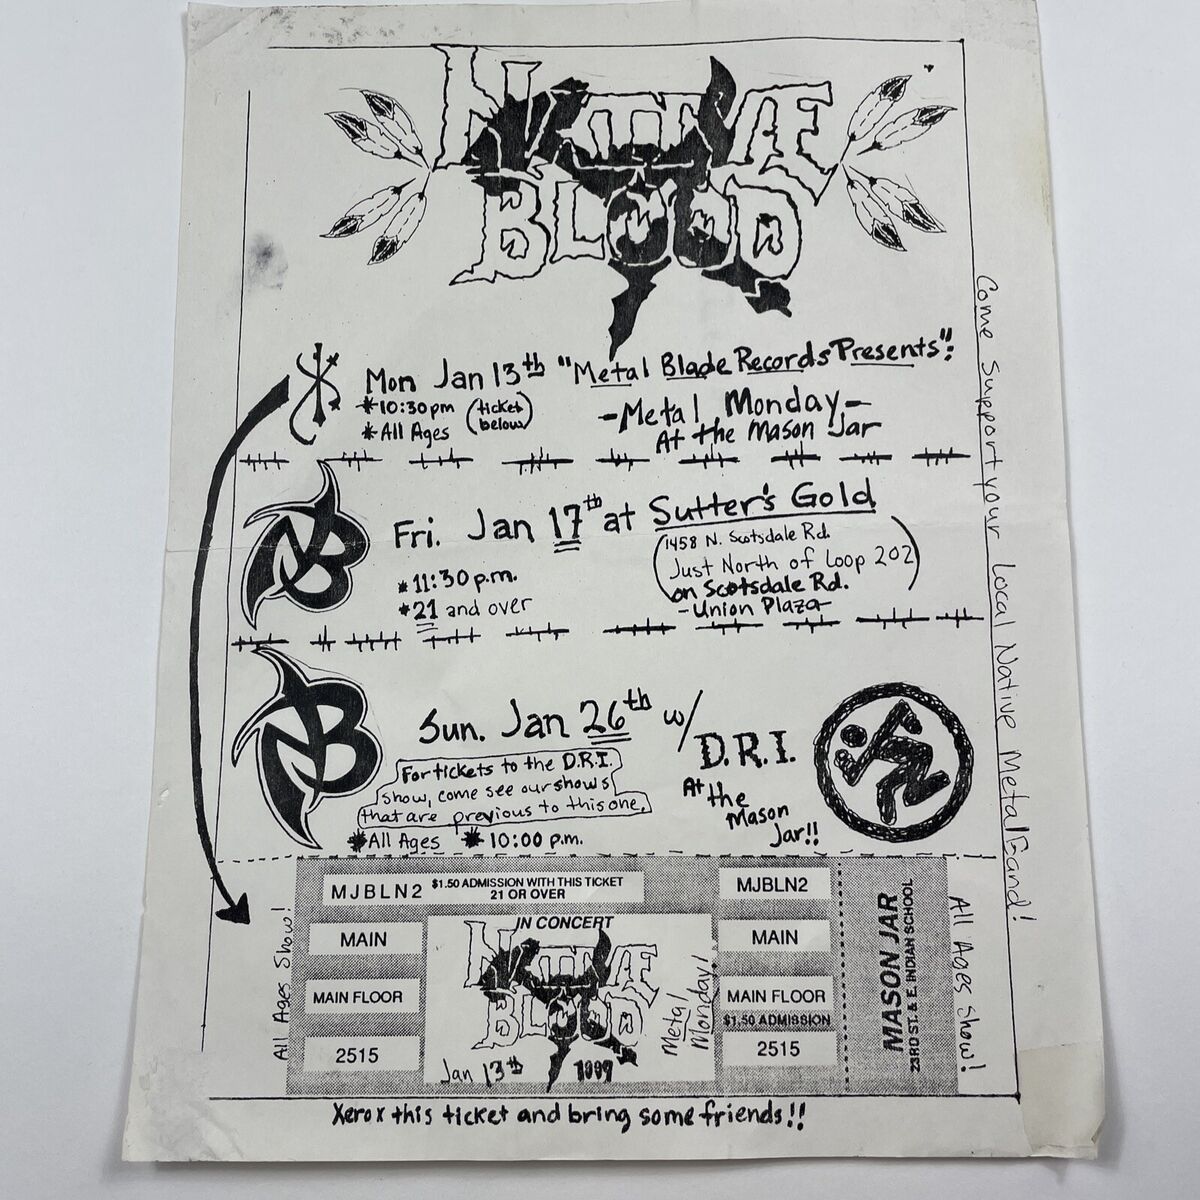 NATIVE
BLOOD
Mon Jan 13th "Metal Blade Records Presents":
*10:30pm (ticket below)
*All Ages
-Metal Monday-
At the Mason Jar
NB
Fri. Jan 17th at Sutter's Gold
*11:30 p.m.
*21 and over
(1458 N. Scotsdale Rd.
Just North of Loop 202)
on Scotsdale Rd.
-Union Plaza-
NB
Sun. Jan 26th w/ D.R.I.
At the
Mason
Jar!!
For tickets to the D.R.I.
show, come see our shows
that are previous to this one.
*All Ages *10:00 p.m.
Come Support your Local Native Metal Band!
All Ages Show!
MJBLN2
$1.50 ADMISSION WITH THIS TICKET
21 OR OVER
MAIN
MAIN FLOOR
2515
IN CONCERT
NATIVE
BLOOD
Jan 13th 1997
Metal
Monday!
MJBLN2
MAIN
MAIN FLOOR
$1.50 ADMISSION
2515
MASON JAR
23RD ST. & E. INDIAN SCHOOL
All Ages Show!
Xerox this ticket and bring some friends!!